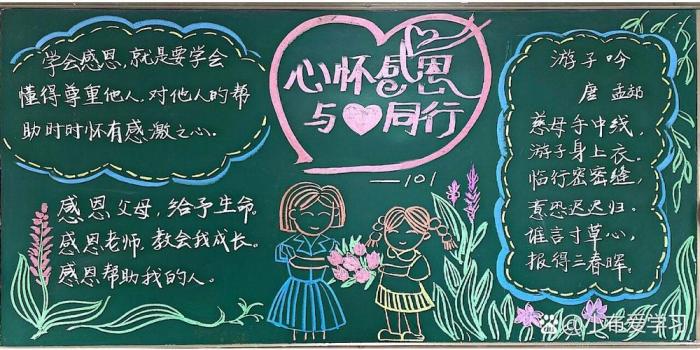 学会感恩，就是要学会
懂得尊重他人，对他人的帮
助时时怀有感激之心。
感恩父母，给予生命。
感恩老师，教会我成长。
感恩帮助我的人。
心怀感恩
与❤同行
——101
游子吟
唐 孟郊
慈母手中线，
游子身上衣。
临行密密缝，
意恐迟迟归。
谁言寸草心，
报得三春晖。
@小布爱学习